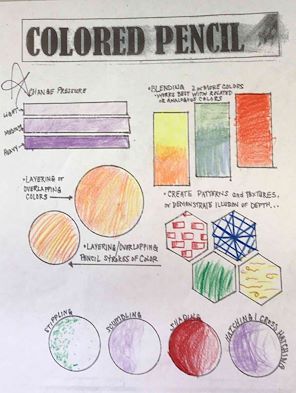 COLORED PENCIL
CHANGE PRESSURE
LIGHT
MEDIUM
HEAVY
•BLENDING 2 OR MORE COLORS
•WORKS BEST WITH RELATED
OR ANALAGOUS COLORS
•LAYERING OR
OVERLAPPING
COLORS
•CREATE PATTERNS and TEXTURES,
OR DEMONSTRATE ILLUSION OF DEPTH...
•LAYERING/OVERLAPPING
PENCIL STROKES OF COLOR
STIPPLING
SCUMBLING
SHADING
HATCHING/CROSS HATCHING